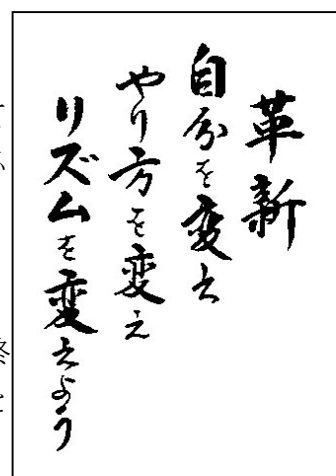 革新
自分を変え
やり方を変え
リズムを変えよう